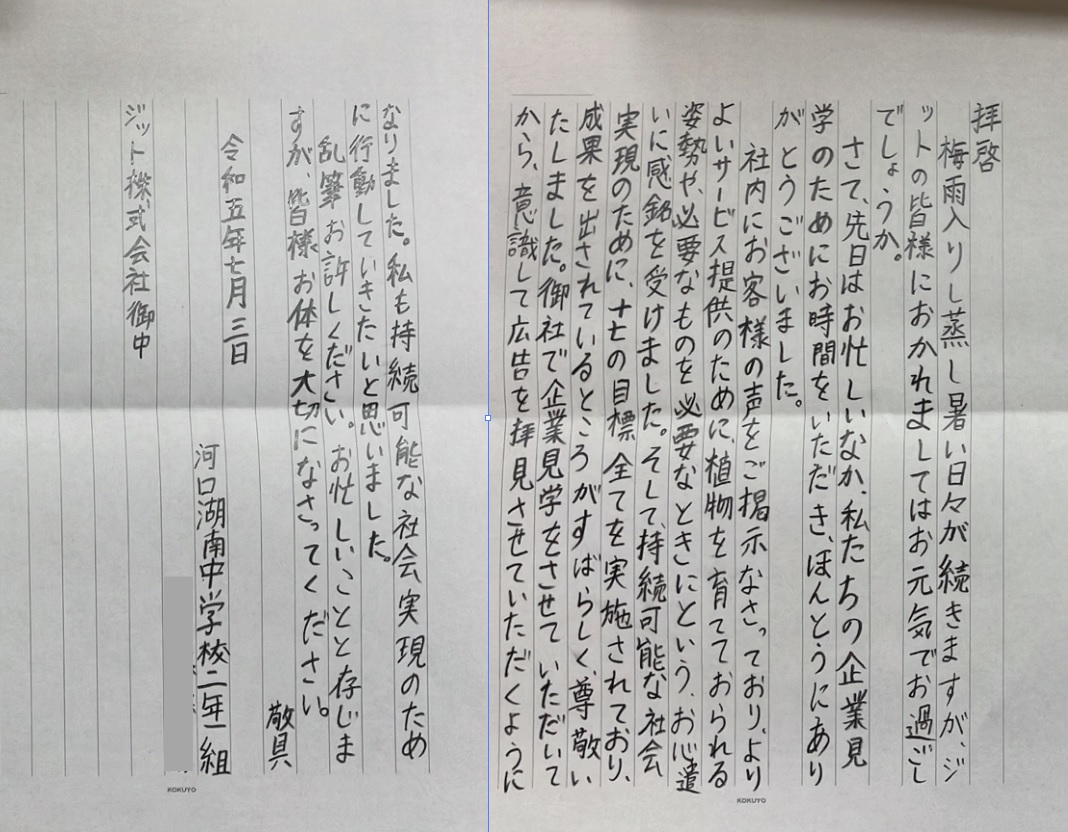 拝啓
梅雨入りし蒸し暑い日々が続きますが、ジ
ットの皆様におかれましてはお元気でお過ごし
でしょうか。
さて、先日はお忙しいなか、私たちの企業見
学のためにお時間をいただき、ほんとうにあり
がとうございました。
社内にお客様の声をご掲示なさっており、より
よいサービス提供のために、植物を育てておられる
姿勢や、必要なものを必要なときにという、お心遣
いに感銘を受けました。そして、持続可能な社会
実現のために、十七の目標全てを実施されており、
成果を出されているところがすばらしく、尊敬い
たしました。御社で企業見学をさせていただいて
から、意識して広告を拝見させていただくように
KOKUYO
なりました。私も持続可能な社会実現のため
に行動していきたいと思いました。
乱筆お許しください。お忙しいことと存じま
すが、皆様お体を大切になさってください。
敬具
令和五年七月三日
河口湖南中学校二年一組
ジット株式会社御中
KOKUYO